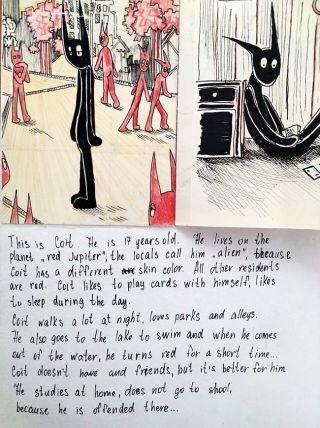 This is Coit. He is 17 years old. He lives on the
planet „red Jupiter", the locals call him „alien", because
Coit has a different skin color. All other residents
are red. Coit likes to play cards with himself, likes
to sleep during the day.
Coit walks a lot at night, loves parks and alleys.
He also goes to the lake to swim and when he comes
out of the water, he turns red for a short time...
Coit doesn't have and friends, but it's better for him
He studies at home, does not go to shool,
because he is offended there...